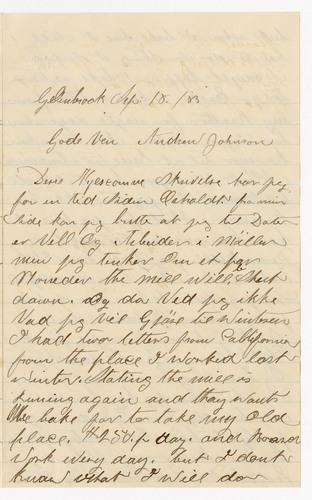 Glenbrook Sep. 18. /83
Gode Ven Andrew Johnson
Deres Kjerkomne Skrivelse har jeg
for en tid Siden Erholdt fra min
Side kan jeg berette at jeg til Dato
er Vell Og Arbeider i Möllen
men jeg tinker Om et par
Moneder the mill will be Shut
down. Og da Ved jeg ikke
Vad jeg vil Gjöre til Winteren
I had two letters from Californie
from the place I worked last
winter. Stating the mill is
runing again and they wants
Me back for to take my Old
place. $2.50. p day. and Board
Work every day. but I dont
know what I will do